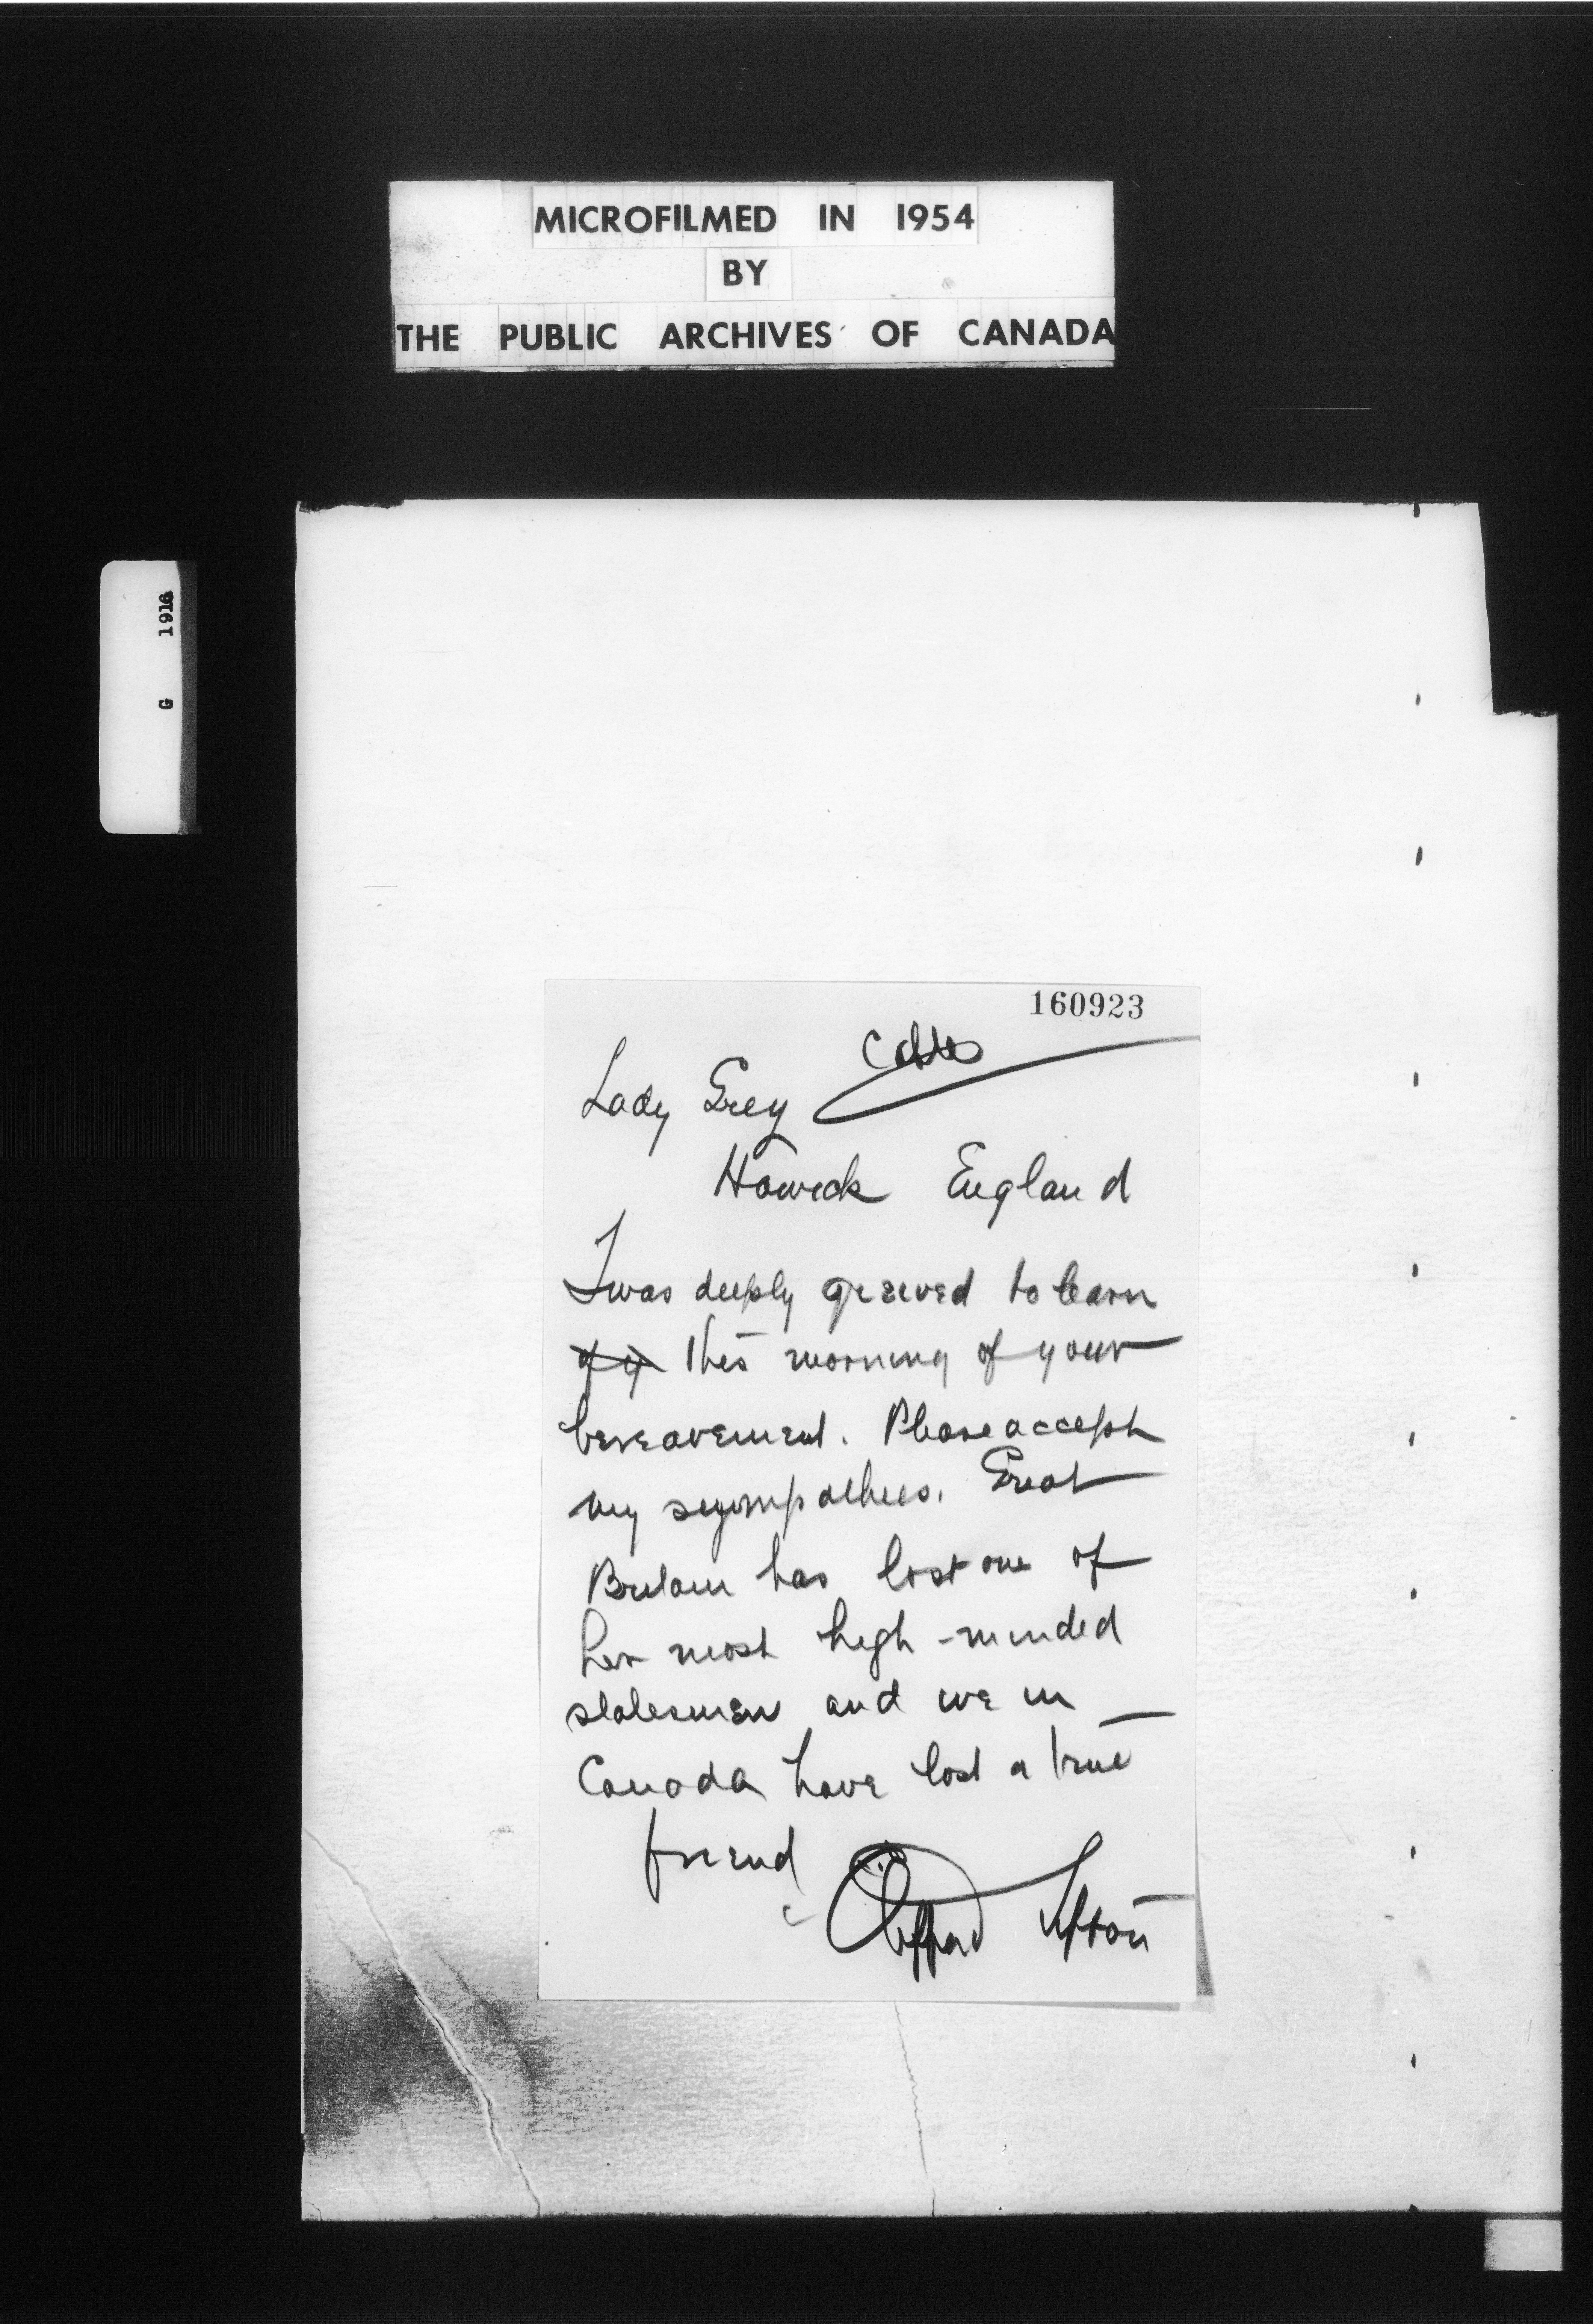 MICROFILMED IN 1954
BY
THE PUBLIC ARCHIVES OF CANADA
G 1916
160923
Lady Grey
Howick England
I was deeply grieved to learn
this morning of your
bereavement. Please accept
my sympathies. Great
Britain has lost one of
her most high-minded
statesmen and we in
Canada have lost a true
friend
Clifford Sifton